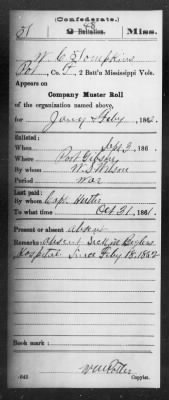 (Confederate.)
48
9 Battalion. Miss.
W. C. Tompkins
Pvt, Co. F, 2 Batt'n Mississippi Vols.
Appears on
Company Muster Roll
of the organization named above,
for Jany & Feby, 186
Enlisted:
When Sept 3, 186
Where Port Gibson
By whom W. S. Wilson
Period War
Last paid:
By whom Capt.
To what time Oct 31, 1861.
Present or absent Absent
Remarks: Absent Sick in
Hospital Since Feby 18, 1862
Book mark:
(642)
Copyist.